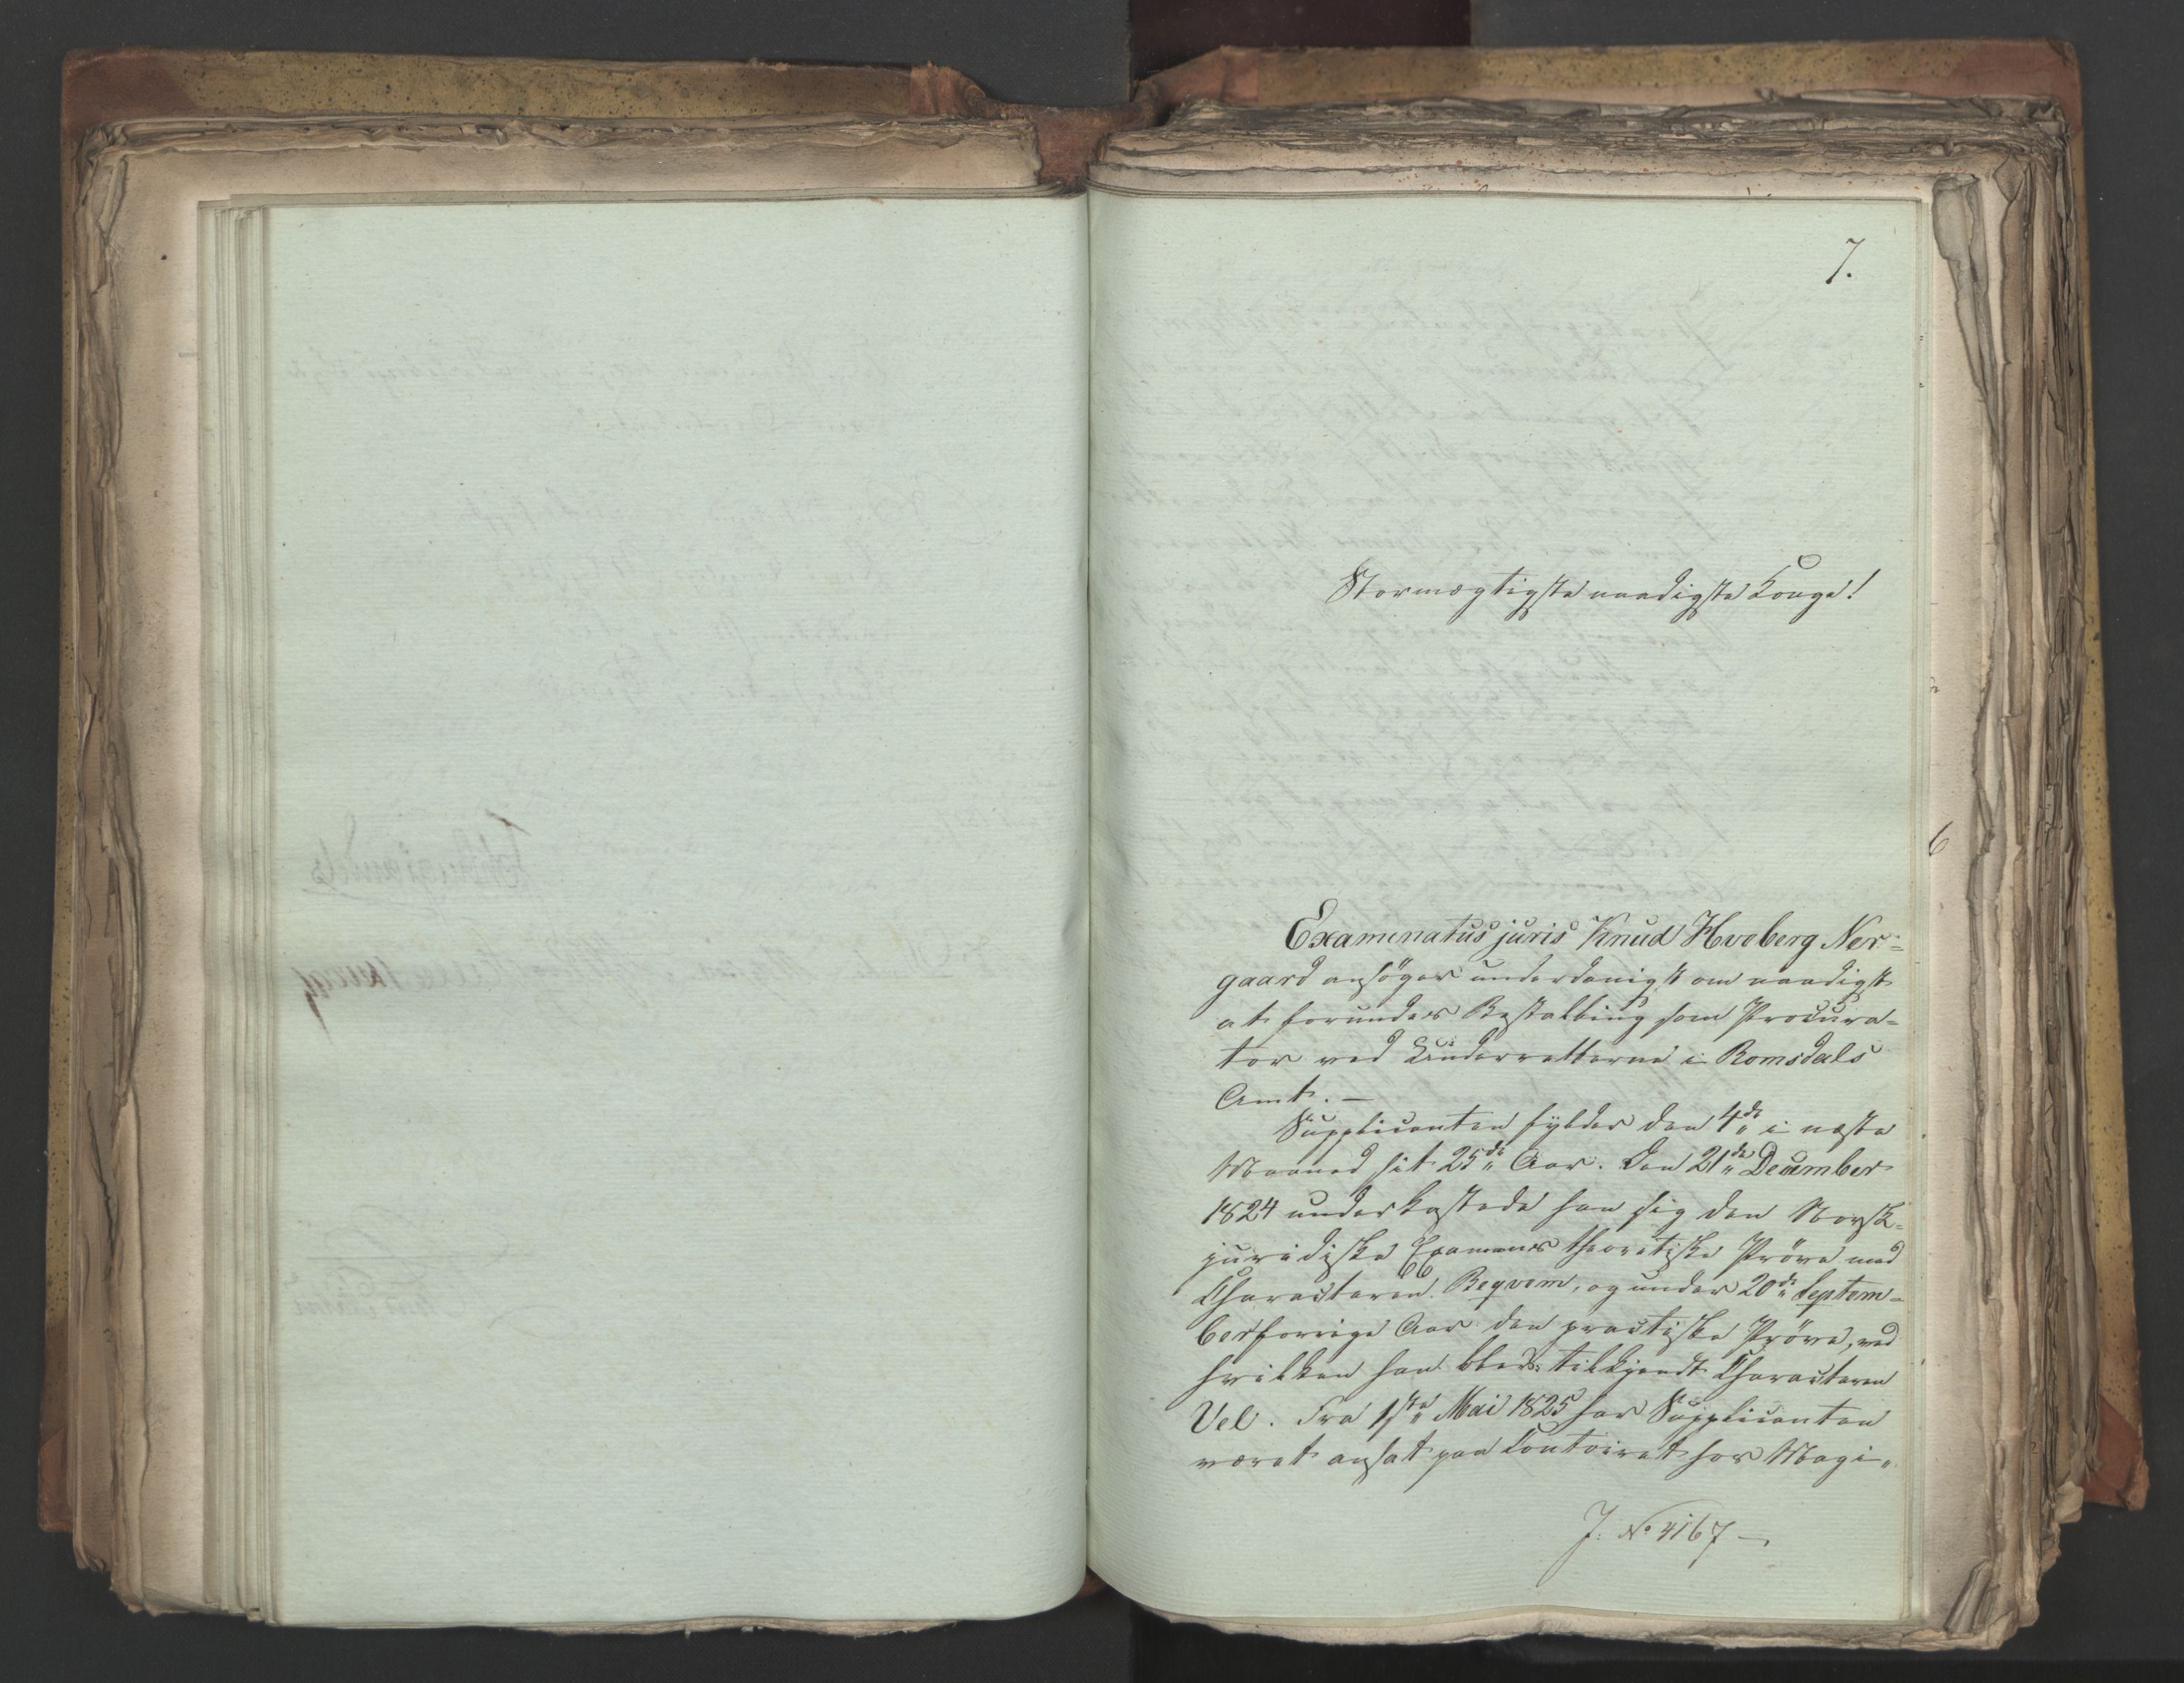 7.
Stormægtigste naadigste Konge!
6
Examinatus juris Knud Hveberg Ner=
gaard ansøger underdanigst om naadigst
at forundes Bestalling som Procura-
tor ved Underretterne i Romsdals
Amt. —
Supplicanten fylder den 4de i næste
Maaned sit 25de Aar. Den 21de December
1824 underkastede han sig den Norsk-
juridiske Examens theoretiske Pröve med
Characteren Beqvem, og under 20de Septem-
ber forrige Aar den practiske Pröve, ved
hvilken han blev tilkjendt Characteren
Vel. Fra 1ste Mai 1825 har Supplicanten
været ansat paa Contoiret hos Magi-
J. No 4167 —